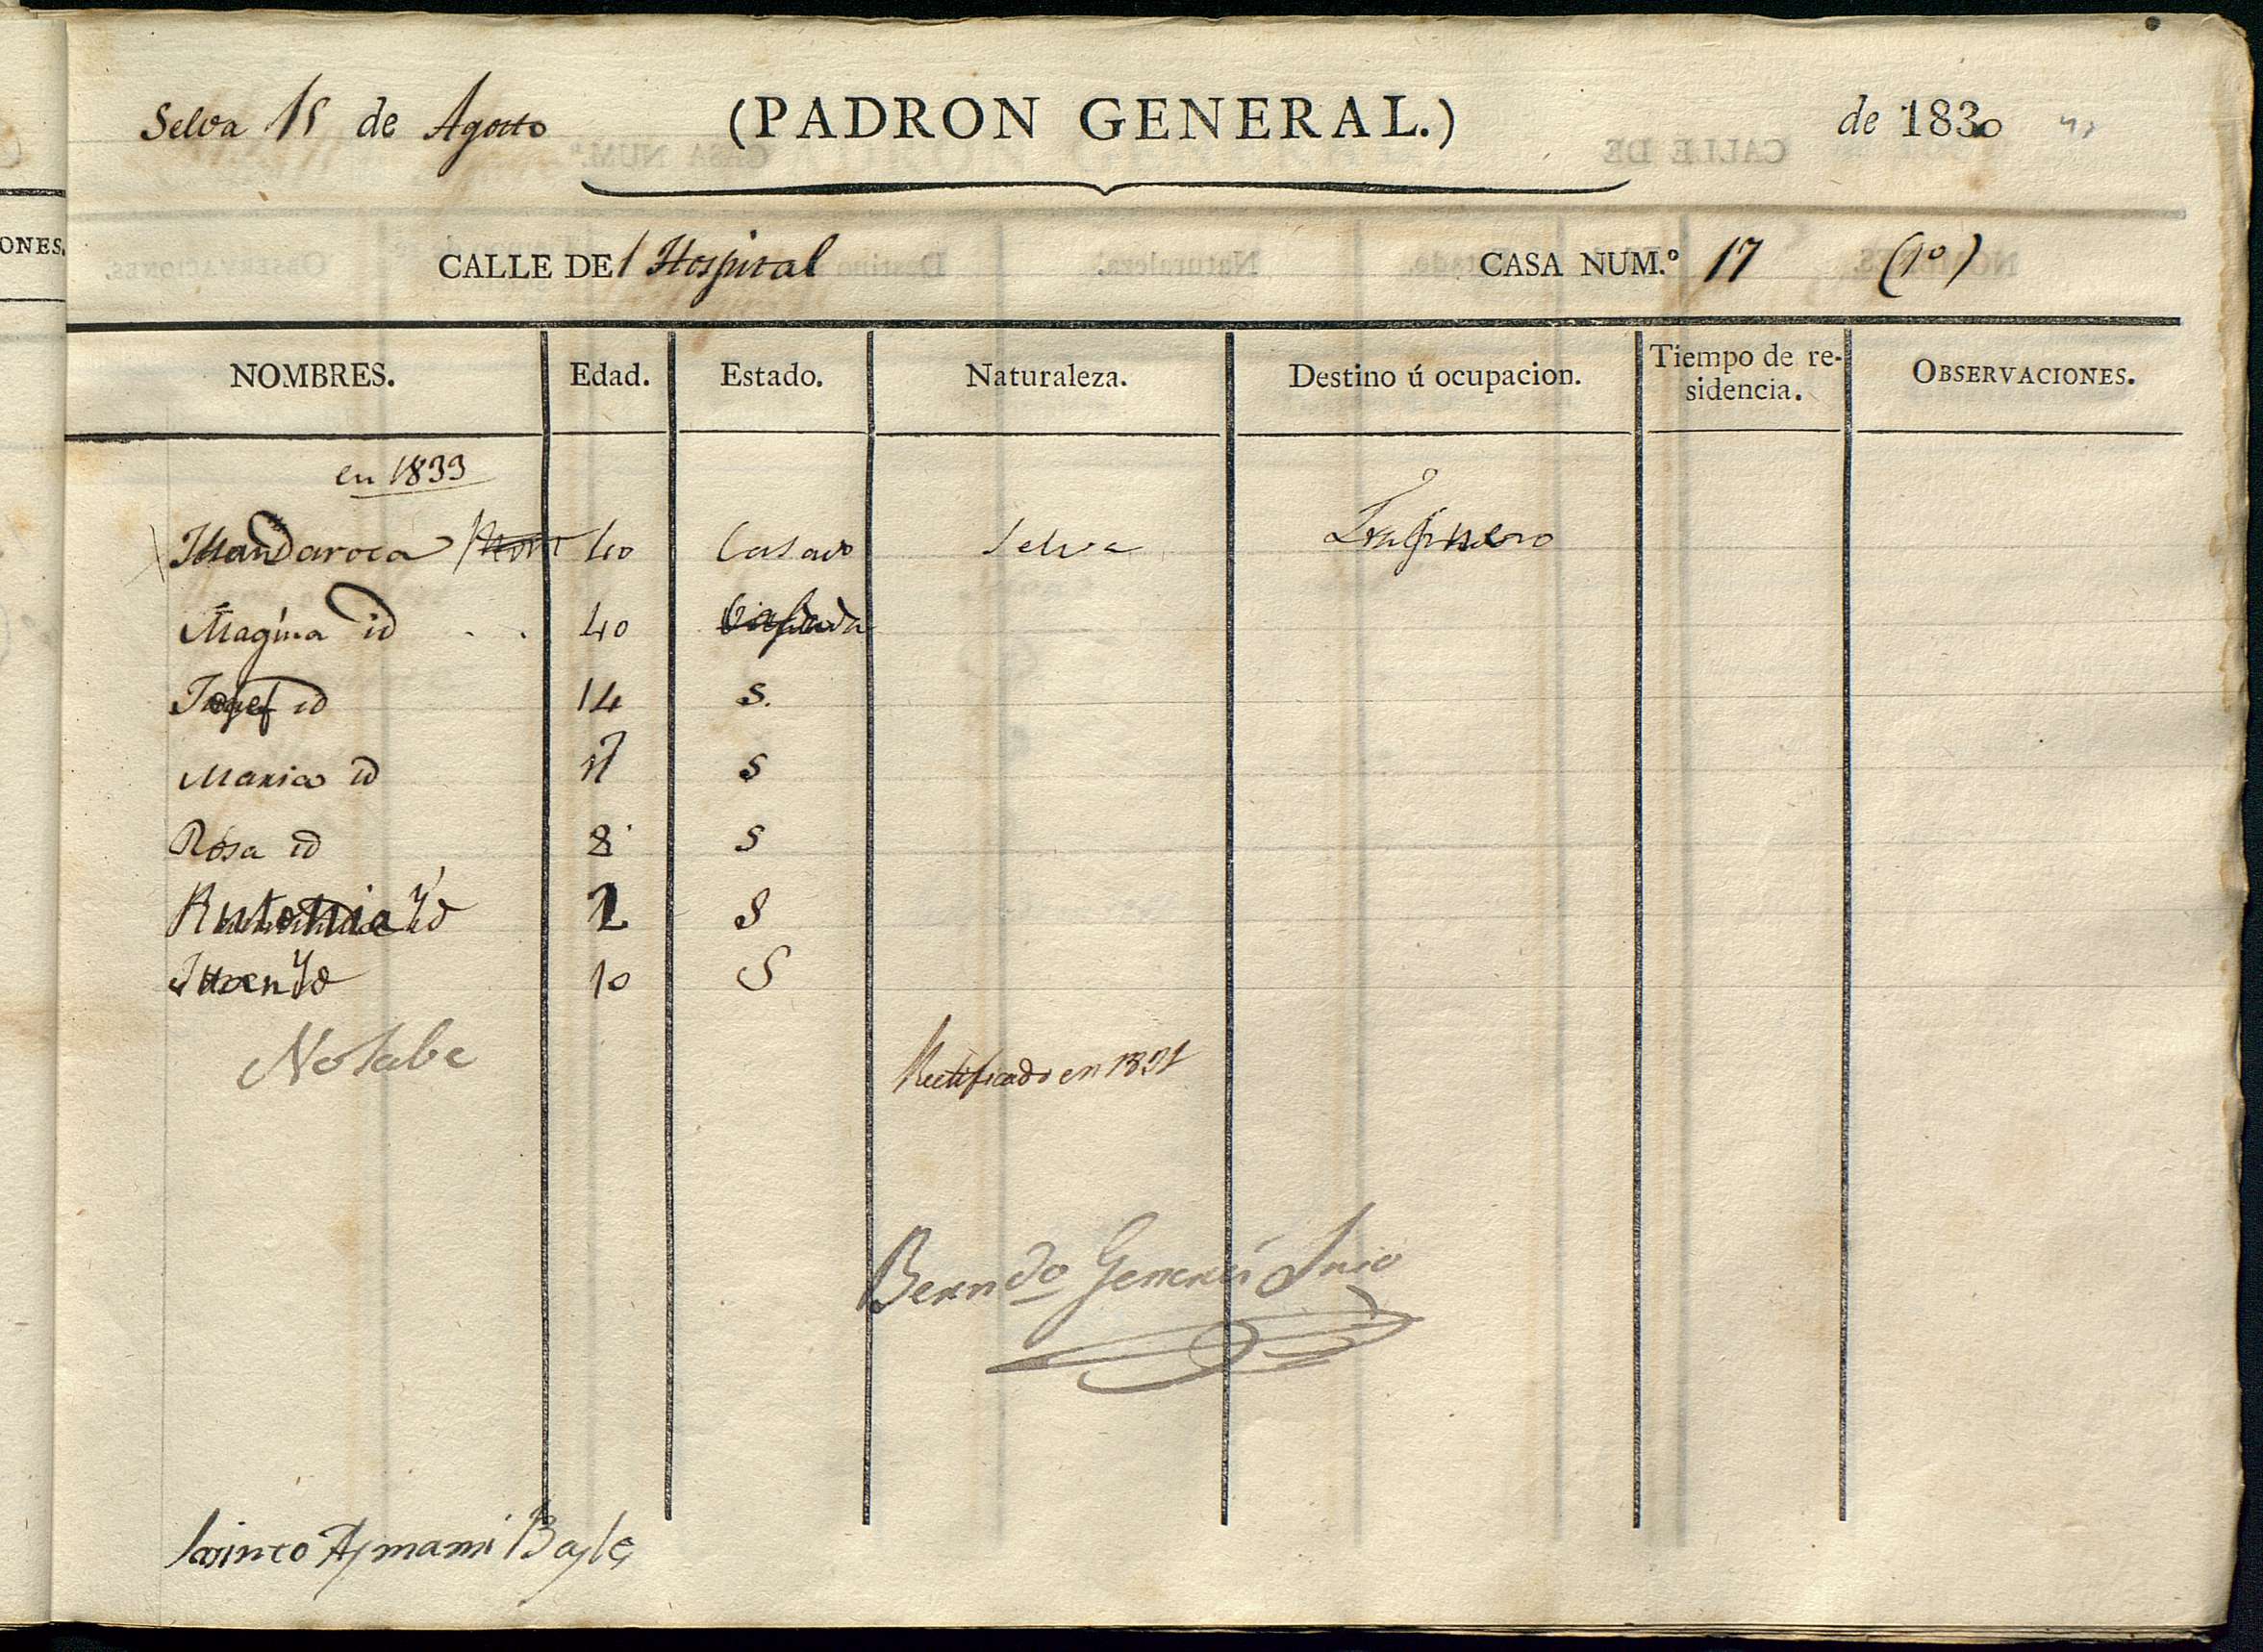 ONES.
Selva 15 de Agosto (PADRON GENERAL.) de 1830
CALLE DEl Hospital CASA NUM.º 17 (1º)
NOMBRES. Edad. Estado. Naturaleza. Destino ú ocupacion. Tiempo de re-
sidencia. OBSERVACIONES.
en 1833
Juan Daroca 40 Casado Selva
Magina id 40
Josef id 14 S.
Maria id 17 S
Rosa id 8 S
Antonia Yd 2 S
Juan Yd 10 S
No sabe Rectificado en 1831
Berndo Srio
Aymami Bayle